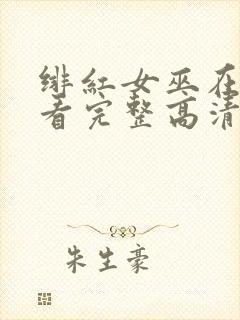 绯红女巫在
看完整高清
朱生豪